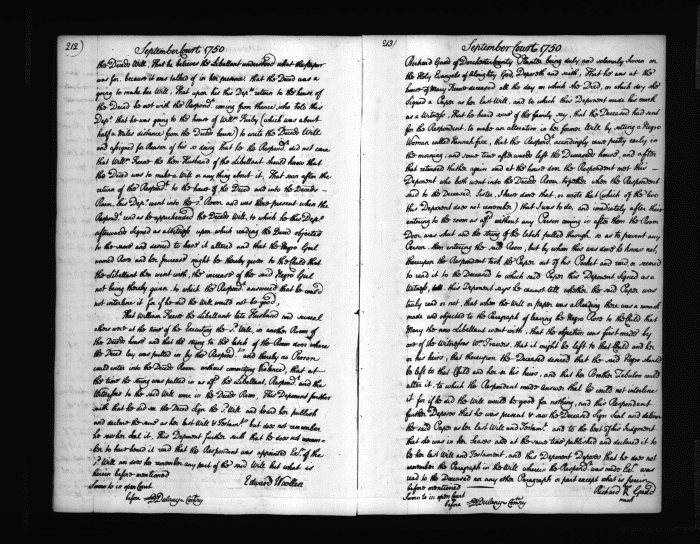 212)
September Court 1750
the Deceds Will, That he believes the Libellant understood what the paper
was for, because it was talked of in her presence, that the Deced was a
going to make her Will, That upon his this Depts return to the house of
the Deced he met with the Respondt coming from thence, who told this
Dept that he was going to the house of Willm (which was about
half a Miles distance from the Deceds house) to write the Deceds Will
and assigned for Reason of his so doing that he the Respondt did not care
that Willm the then Husband of the Libellant should know that
the Deced was to make a Will or any thing about it, That soon after the
return of the Respondt to the house of the Deced and into the Deceds
Room, this Dept went into the sd Room and was there present when the
Respondt read as he apprehended the Deceds Will, to which he this Dept
afterwards Signed as a Witness upon which reading the Deced objected
to the same and desired to have it altered and that the Negroe Girl
named Rose and her Increase might be thereby given to the Child that
the Libellant then went with, the increase of the said Negroe Girl
not being thereby given, to which the Respondt answered that he could
not interline it for if he did the Will would not be good,
That William the Libellants late Husband and several
others were at the time of the Executing the sd Will, in another Room of
the Deceds house and that the string to the latch of the Room door where
the Deced lay was pulled in by the Respondt and thereby no Person
could enter into the Deceds Room without committing Violence, that at
the time the string was pulled in as aforesd the Libellant, Respondt and the
Witnesses to the said Will were in the Deceds Room, This Deponent further
saith that he did see the Deced Sign the sd Will and heard her publish
and declare the same as her last Will & Testamt but does not remember
he saw her seal it, This Deponent further saith that he does not remem-
ber to have heard it read that the Respondent was appointed Exr of the
sd Will nor does he remember any part of the said Will but what is
herein before mentioned
Edward Woollen
Sworn to in open Court
before Dulany Comry
213)
September Court 1750.
Richard Gould of Dorchester County Planter being duly and solemnly Sworn on
the Holy Evangels of Almighty God, Deposeth and saith, That he was at the
house of Mary deceased all the day on which she Died, on which day she
Signed a Paper as her last Will, and to which this Deponent made his mark
as a Witness, That he heard some of the family say, that the Deceased had sent
for the Respondent, to make an alteration in her former Will by setting a Negro
Woman called Hannah free, that the Respondt accordingly came pretty early in
the morning, and some time afterwards left the Deceaseds house, and after
that returned thither again and at the house door the Respondent met this
Deponent who both went into the Deceds Room together when the Respondent
said to the Deceased, Sister, I have wrote that, or wrote that (which of the two
this Deponent does not remember) that I was to do, and immediately after their
entering the room as aforesd without any Person coming in after them the Room
Door was shut and the string of the latch pulled through so as to prevent any
Person then entering the said Room, but by whom this was done he knows not,
thereupon the Respondent took the Paper out of his Pocket and read or seemed
to read it to the Deceased to which said Paper this Deponent Signed as a
Witness, this Deponent says he cannot tell whether the said Paper was
truly read or not, that when the Will or paper was a Reading there was a remark
made and objected to the Paragraph of having the Negroe Rose to the Child that
Mary the now Libellant went with, that the objection was first made by
one of the Witnesses Wm Travers, that it might be left to that Child and her
or his heirs, that thereupon the Deceased desired that the said Negroe should
be left to that Child and her or his heirs, and that her Brother Zebulon could
alter it, to which the Respondent made Answer that he could not interline
it for if he did the Will would be good for nothing, and this Respondent
further Deposes that he was present & saw the Deceased Sign Seal and deliver
the said Paper as her last Will and Testamt and to the best of his Judgment
that she was in her Senses and at the same time published and declared it to
be her last Will and Testament, and this Deponent Deposes that he does not
remember the Paragraph in the Will wherein the Respondt was made Exr was
read to the Deceased nor any other Paragraph or part except what is herein
before mentioned
Richard R Gould
mark
Sworn to in open Court
before Dulany Comry